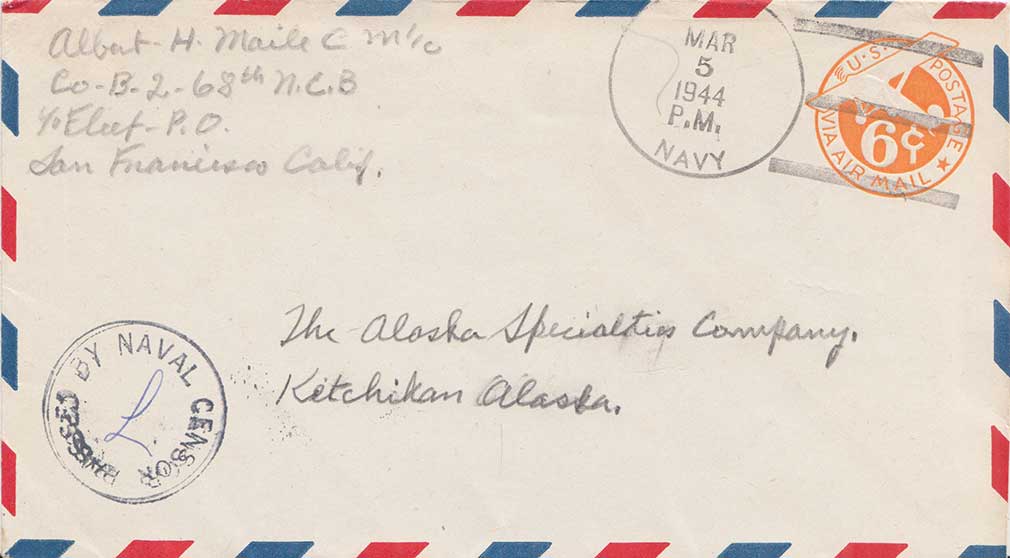 Albert H. Maile C M 1/c
Co-B-2-68th N.C.B
℅ Fleet-P.O.
San Francisco Calif.
MAR
5
1944
P.M.
NAVY
U.S. POSTAGE
6¢
VIA AIR MAIL
The Alaska Specialties Company.
Ketchikan Alaska.
PASSED BY NAVAL CENSOR
L